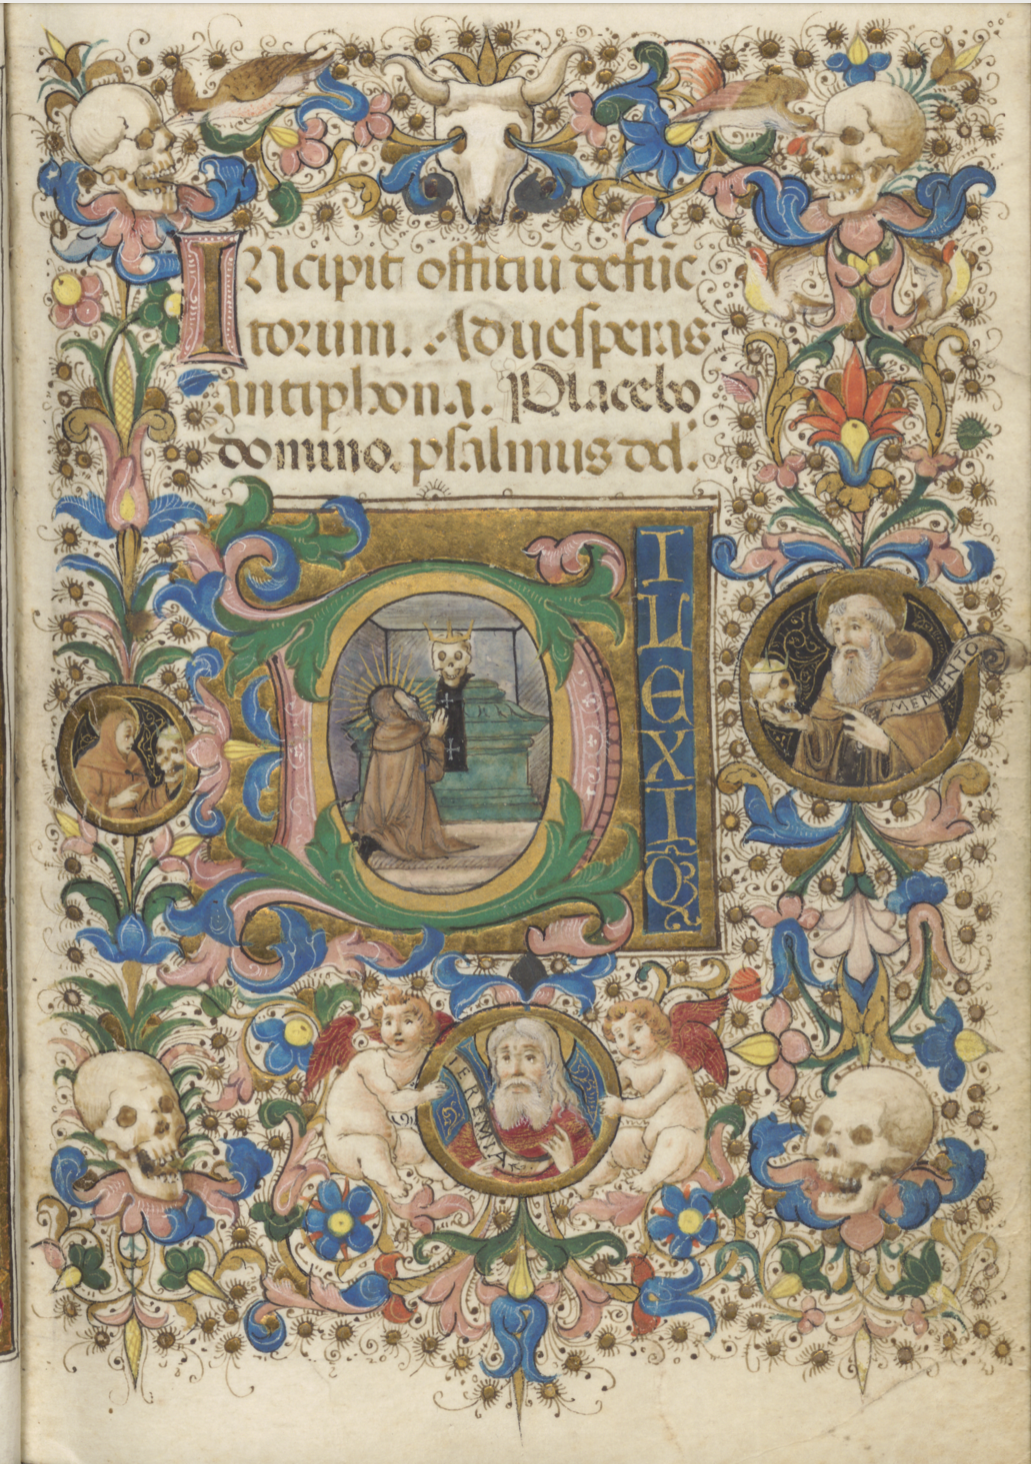 INcipit offitiū defūc
torum. Ad uesperas
antiphona. Placebo
domino. psalmus dd'.
DILEXI Q
MEMENTO
IEREMIA